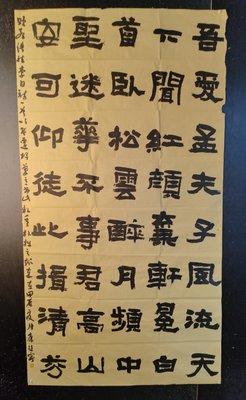 吾愛孟夫子風流天
下聞紅顏棄軒冕白
首臥松雲醉月頻中
聖迷華不事君高山
安可仰徒此揖清芬